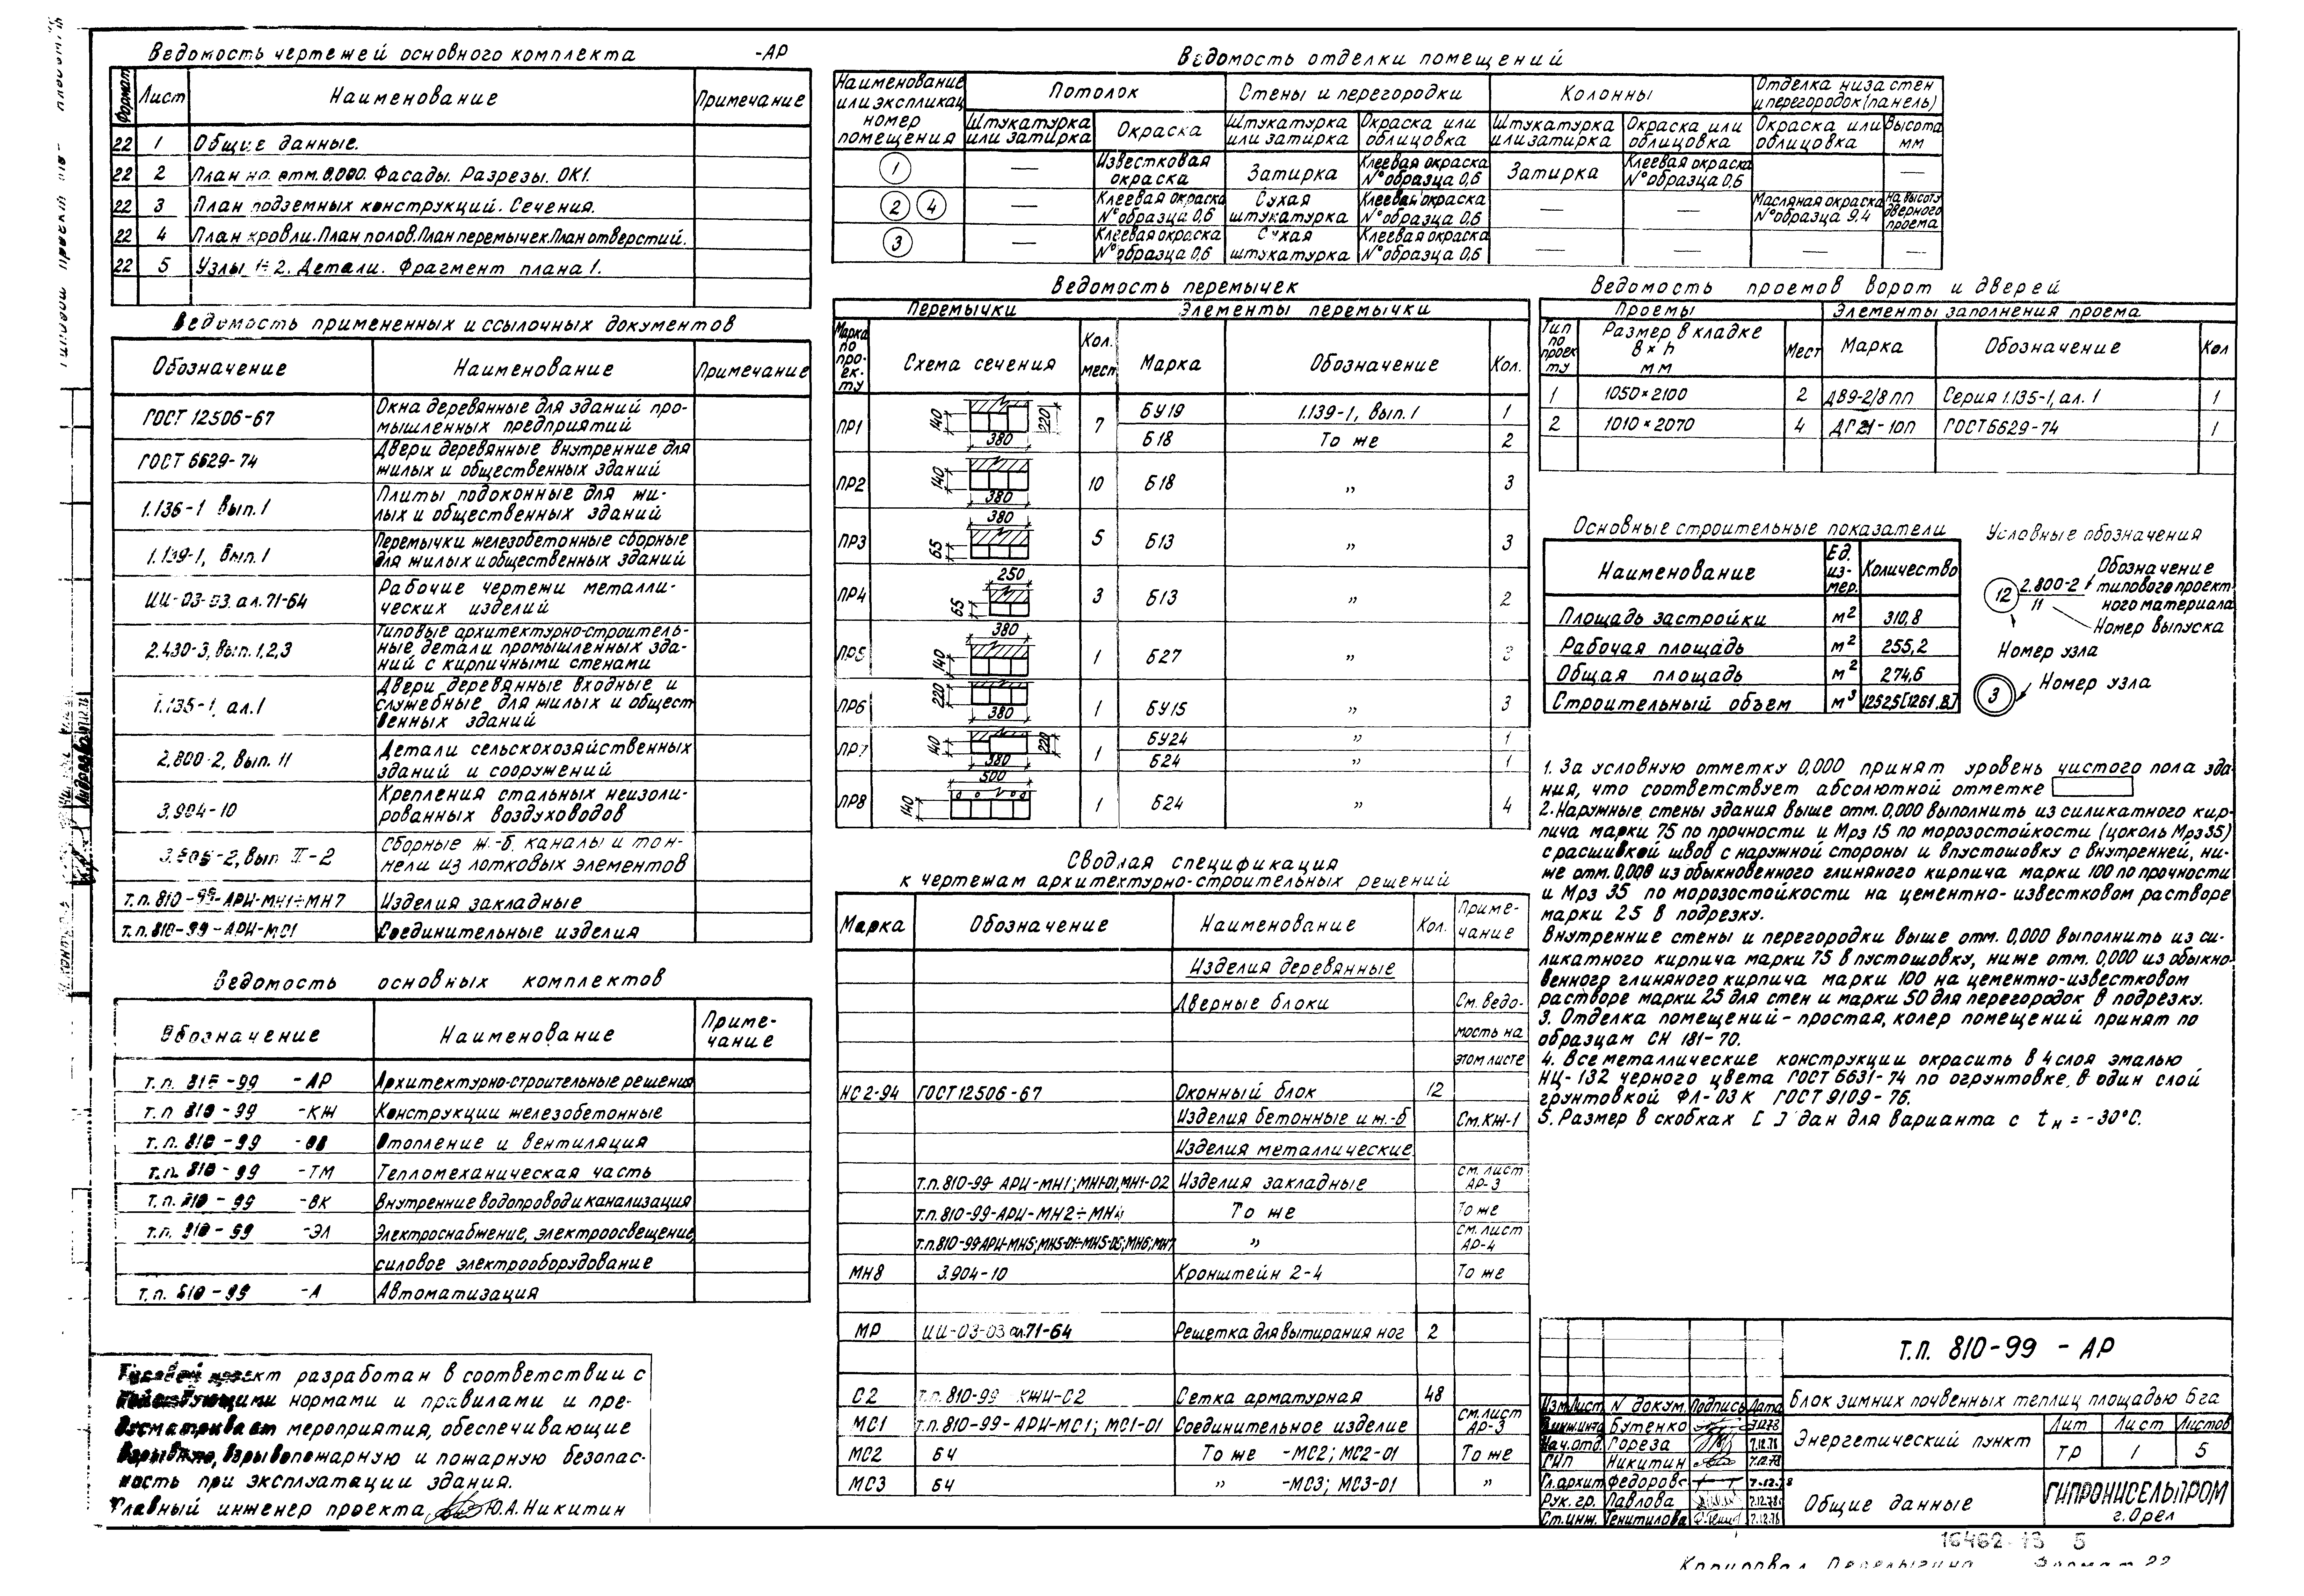 Ведомость чертежей основного комплекта -АР
Формат Лист Наименование Примечание
22 1 Общие данные.
22 2 План на отм. 0,000. Фасады. Разрезы. ОК1.
22 3 План подземных конструкций. Сечения.
22 4 План кровли. План полов. План перемычек. План отверстий.
22 5 Узлы 1÷2. Детали. Фрагмент плана 1.
Ведомость примененных и ссылочных документов
Обозначение Наименование Примечание
ГОСТ 12506-67 Окна деревянные для зданий про-
мышленных предприятий
ГОСТ 6629-74 Двери деревянные внутренние для
жилых и общественных зданий
1.136-1 Вып.1 Плиты подоконные для жи-
лых и общественных зданий
1.139-1, Вып.1 Перемычки железобетонные сборные
для жилых и общественных зданий
ИИ-03-03 ал.71-64 Рабочие чертежи металли-
ческих изделий
2.430-3, Вып.1,2,3 Типовые архитектурно-строитель-
ные детали промышленных зда-
ний с кирпичными стенами
1.135-1, ал.1 Двери деревянные входные и
служебные для жилых и общест
венных зданий
2.800-2, Вып. 11 Детали сельскохозяйственных
зданий и сооружений
3.904-10 Крепления стальных неизоли-
рованных воздуховодов
Вып II-2 Сборные ж.-б. каналы и тон-
нели из лотковых элементов
т.п. 810-99-АРИ-МН1÷МН7 Изделия закладные
т.п. 810-99-АРИ-МС1 Соединительные изделия
Ведомость основных комплектов
Обозначение Наименование Приме-
чание
т.п. 810-99 -АР Архитектурно-строительные решения
т.п 810-99 -КЖ Конструкции железобетонные
т.п. 810-99 -ОВ Отопление и вентиляция
т.п. 810-99 -ТМ Тепломеханическая часть
т.п. 810-99 -ВК Внутренние водопровод и канализация
т.п. 810-99 -ЭЛ Электроснабжение, электроосвещение,
силовое электрооборудование
т.п. 810-99 -А Автоматизация
Типовой проект разработан в соответствии с
действующими нормами и правилами и пре-
дусматривает мероприятия, обеспечивающие
взрывную, взрывопожарную и пожарную безопас-
ность при эксплуатации здания.
Главный инженер проекта Ю.А. Никитин
Ведомость отделки помещений
Наименование или экспликац номер помещения Потолок Стены и перегородки Колонны Отделка низа стен и перегородок (панель)
Штукатурка или затирка Окраска Штукатурка или затирка Окраска или облицовка Штукатурка или затирка Окраска или облицовка Окраска или облицовка Высота мм
1 — Известковая окраска Затирка Клеевая окраска N° образца 0,6 Затирка Клеевая окраска N° образца 0,6 —
2 4 — Клеевая окраска N° образца 0,6 Сухая штукатурка Клеевая окраска N° образца 0,6 — — Масляная окраска N° образца 9.4 На высоту дверного проема
3 — Клеевая окраска N° образца 0,6 Сухая штукатурка Клеевая окраска N° образца 0,6 — — — —
Ведомость перемычек
Перемычки Элементы перемычки
Марка по про-ек-ту Схема сечения Кол. мест Марка Обозначение Кол.
ПР1 140 380 220 7 БУ19 1.139-1, вып.1 1
Б18 То же 2
ПР2 140 380 10 Б18 " 3
ПР3 380 65 5 Б13 " 3
ПР4 250 65 3 Б13 " 2
ПР5 380 140 1 Б27 "
ПР6 220 380 1 БУ15 " 3
ПР7 140 380 220 1 БУ24 " 1
Б24 " 1
ПР8 500 140 1 Б24 " 4
Сводная спецификация
к чертежам архитектурно-строительных решений
Марка Обозначение Наименование Кол. Приме-
чание
Изделия деревянные
Дверные блоки См. ведо-
мость на
этом листе
НС2-94 ГОСТ 12506-67 Оконный блок 12
Изделия бетонные и ж.-б См. КЖ-1
Изделия металлические
т.п. 810-99-АРИ-МН1; МН1-01, МН1-02 Изделия закладные См. лист АР-3
т.п. 810-99-АРИ-МН2÷МН4 То же То же
т.п. 810-99-АРИ-МН5; МН5-01÷МН5-05; МН6; МН7 " См. лист АР-4
МН8 3.904-10 Кронштейн 2-4 То же
МР ИИ-03-03 ал.71-64 Решетка для вытирания ног 2
С2 т.п. 810-99 КЖИ-С2 Сетка арматурная 48
МС1 т.п. 810-99-АРИ-МС1; МС1-01 Соединительное изделие См. лист АР-3
МС2 БЧ То же -МС2; МС2-01 То же
МС3 БЧ " -МС3; МС3-01 "
Ведомость проемов ворот и дверей
Проемы Элементы заполнения проема
Тип по проек ту Размер в кладке в×h мм Мест Марка Обозначение Кол
1 1050×2100 2 ДВ9-2/8 ПП Серия 1.135-1, ал. 1 1
2 1010×2070 4 ДГ21-10П ГОСТ 6629-74 1
Основные строительные показатели
Наименование Ед. из-мер. Количество
Площадь застройки м² 310,8
Рабочая площадь м² 255,2
Общая площадь м² 274,6
Строительный объем м³ 1252,5[1261.8]
Условные обозначения
12 2.800-2 11 Обозначение
типового проект
ного материала
Номер выпуска
Номер узла
3 Номер узла
1. За условную отметку 0,000 принят уровень чистого пола зда-
ния, что соответствует абсолютной отметке
2. Наружные стены здания выше отм. 0,000 выполнить из силикатного кир-
пича марки 75 по прочности и Мрз 15 по морозостойкости (цоколь Мрз 35)
с расшивкой швов с наружной стороны и впустошовку с внутренней, ни-
же отм. 0,000 из обыкновенного глиняного кирпича марки 100 по прочности
и Мрз 35 по морозостойкости на цементно-известковом растворе
марки 25 в подрезку.
Внутренние стены и перегородки выше отм. 0,000 выполнить из си-
ликатного кирпича марки 75 в пустошовку, ниже отм. 0,000 из обыкно-
венного глиняного кирпича марки 100 на цементно-известковом
растворе марки 25 для стен и марки 50 для перегородок в подрезку.
3. Отделка помещений - простая, колер помещений принят по
образцам СН 181-70.
4. Все металлические конструкции окрасить в 4 слоя эмалью
НЦ-132 черного цвета ГОСТ 6631-74 по огрунтовке в один слой
грунтовкой ФЛ-03К ГОСТ 9109-76.
5. Размер в скобках [ ] дан для варианта с tн = -30°С.
Т.П. 810-99 - АР
Блок зимних почвенных теплиц площадью 6 га
Изм. Лист N докум. Подпись Дата
Бутенко
Нач. отд. Гореза 7.12.78
ГИП Никитин 7.12.78
Гл. архит Федоров 7.12.78
Рук. гр. Павлова 7.12.78
Ст. инж. Тенитилова 7.12.78
Энергетический пункт
Лит Лист Листов
ТР 1 5
Общие данные
ГИПРОНИСЕЛЬПРОМ
г. Орел
16462-13 5
Копировал Перелыгина Формат 22